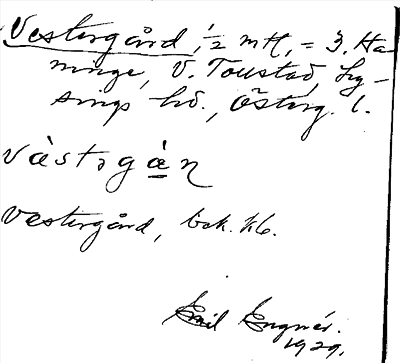 Vestergård, ½ mtl, = 3. Ha-
ninge, V. Tollstad, Ly-
sings hd., Österg. l.
vàstəgàṇ
Vestergård, bok. kb.
Emil Engnér.
1929.